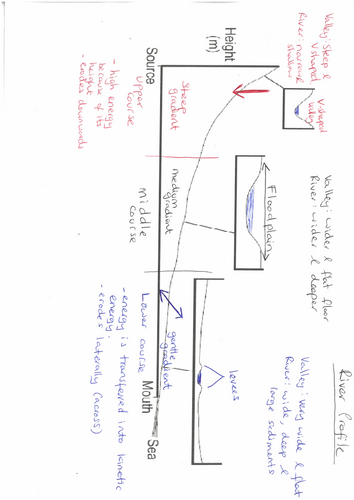 River Profile
Valley: Steep &
V shaped
River: narrow &
shallow
Valley: wider & flat floor
River: wider & deeper
Valley: very wide & flat
River: wide, deep &
large sediments
V-shaped
valley
Floodplain
levees
Height
(m)
Steep
gradient
medium
gradient
gentle
gradient
Source
Mouth
Sea
Upper
course
middle
course
Lower course
- high energy
because of its
height
- erodes downwards
- energy is transferred into kinetic
energy.
- erodes laterally (across)